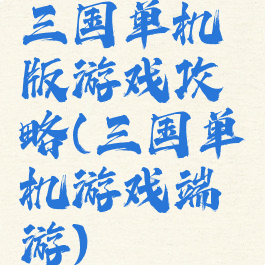 三国单机
版游戏攻
略(三国单
机游戏端
游)